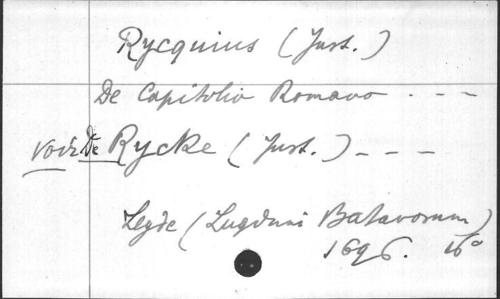 Rycquius (Just.)
De Capitolio Romano - - -
voir De Rycke (Just.) - - -
Leyde (Lugduni Batavorum)
1696. 16°